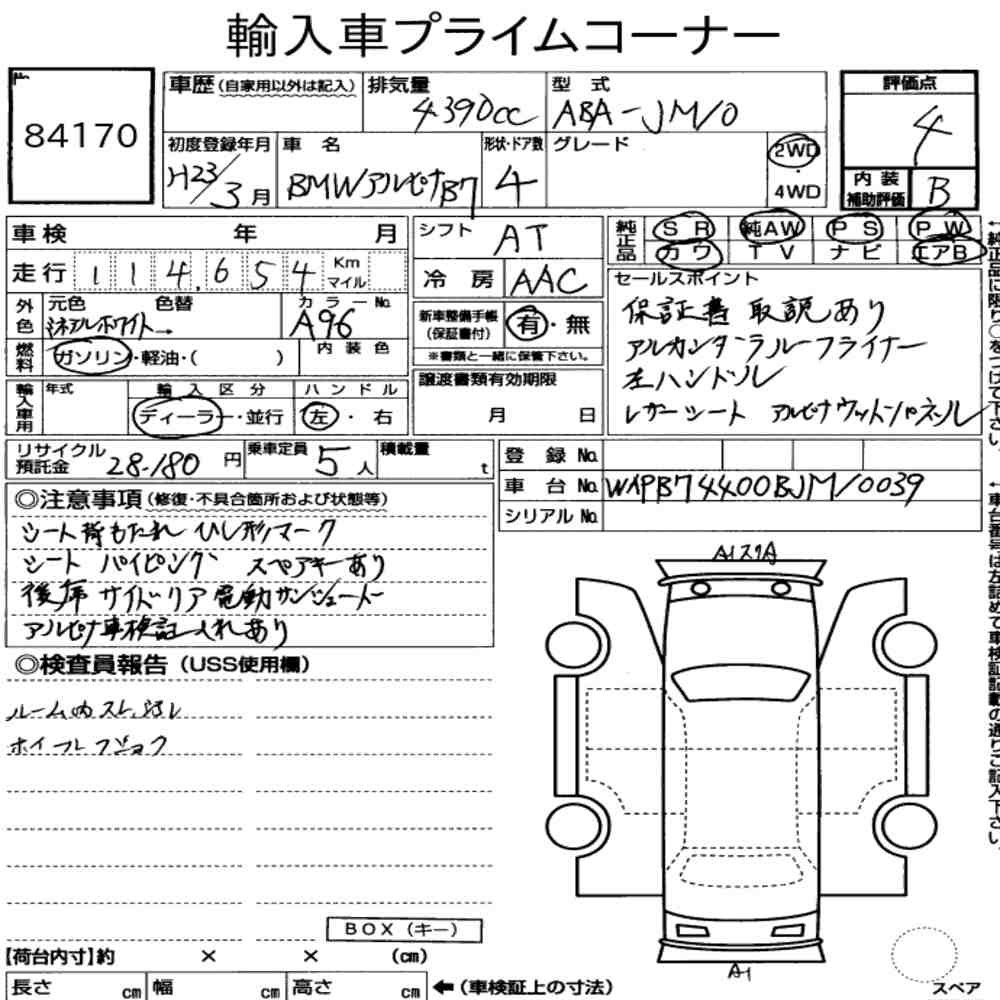 輸入車プライムコーナー
84170
車歴(自家用以外は記入) 排気量 4390cc 型式 ABA-JM10
評価点 4
初度登録年月 H23/3月 車名 BMWアルピナB7 形状・ドア数 4 グレード 2WD・4WD
内装補助評価 B
車検 年 月
シフト AT
純正品 SR 純AW PS PW
カワ TV ナビ エアB
走行 114,654 Km マイル
冷房 AAC
セールスポイント
保証書 取説あり
アルカンターラルーフライナー
左ハンドル
レザーシート アルピナウットパネル
外色 元色 色替 カラーNo.
ミネラルホワイト→ A96
新車整備手帳(保証書付) 有・無
※書類と一緒に保管下さい。
燃料 ガソリン・軽油・( ) 内装色
譲渡書類有効期限
月 日
輸入車用 年式 輸入区分 ハンドル
ディーラー・並行 左・右
リサイクル預託金 28-180円 乗車定員 5人 積載量 t
登録No.
車台No. WAPB74400BJM10039
シリアルNo.
◎注意事項(修復・不具合箇所および状態等)
シート背もたれ ひし形マーク
シート パイピング スペアキーあり
後席 サイドリア電動サンシェード
アルピナ車検証入れあり
◎検査員報告(USS使用欄)
ルーム内スレ
BOX(キー)
【荷台内寸】約 × × (cm)
長さ cm 幅 cm 高さ cm ←(車検証上の寸法)
A1
スペア
↑純正品に限り○をつけて下さい。
↑車台番号は左詰めで車検証記載の通りご記入下さい。